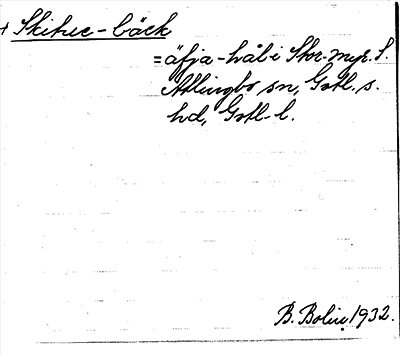 + Skituc-bäck
= äfja-hål i Stor-myr. S.
Atlingbo sn, Gotl. s.
hd, Gotl. l.
B. Bolin, 1932.